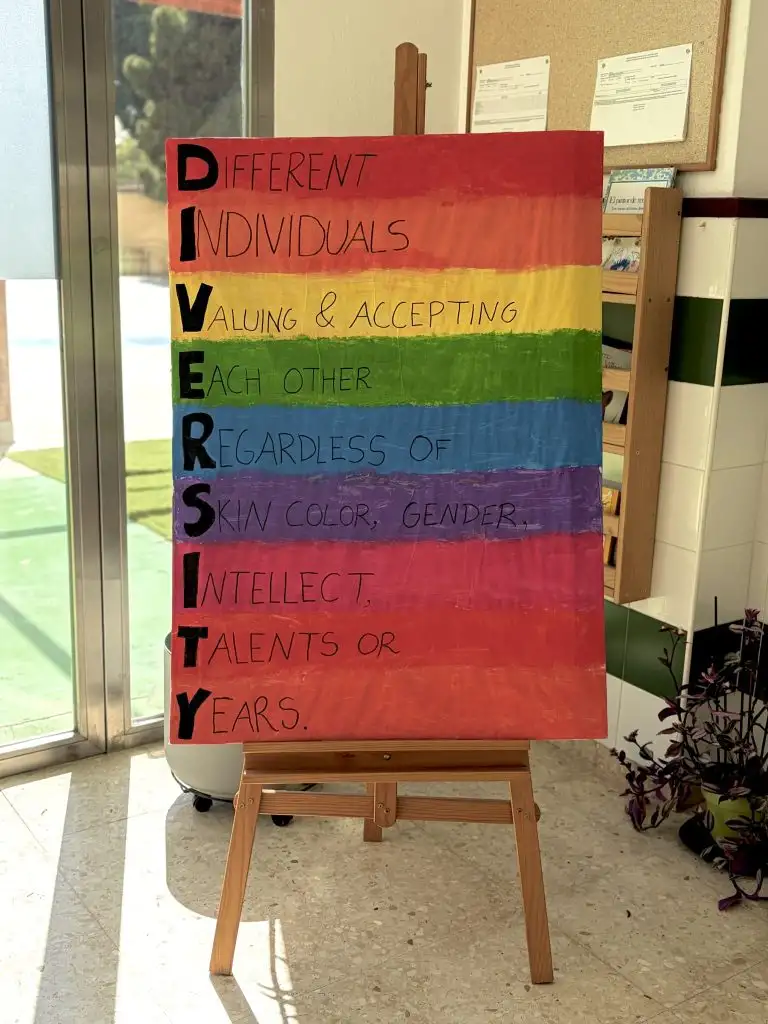 DIFFERENT
INDIVIDUALS
VALUING & ACCEPTING
EACH OTHER
REGARDLESS OF
SKIN COLOR, GENDER,
INTELLECT,
TALENTS OR
YEARS.